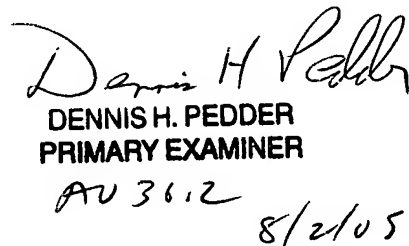 Dennis H Pedder
DENNIS H. PEDDER
PRIMARY EXAMINER
AU 3612
8/2/05